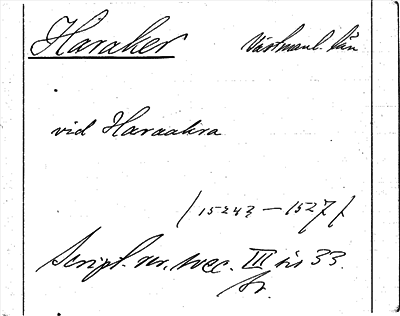 Haraker Västmanl. län
vid Haraakra
/15243 — 1527/
Script. rer. svec. III sis 33.
Av.